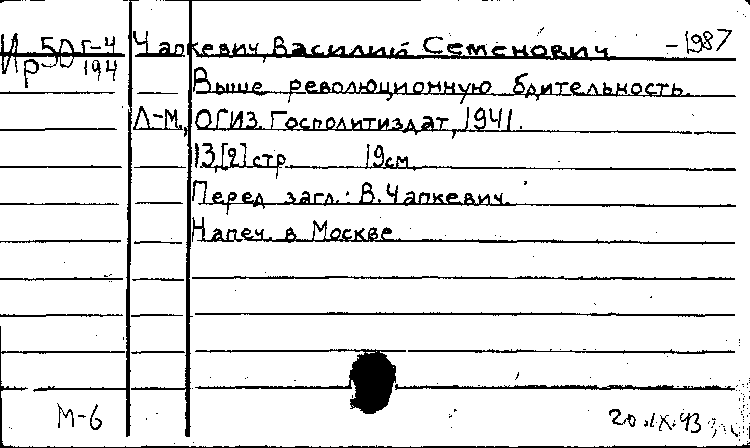 Ир50 Г-4/194
Чапкевич, Василий Семенович -1987
Выше революционную бдительность.
Л-М., ОГИЗ. Госполитиздат, 1941.
13,[2] стр. 19см.
Перед загл.: В. Чапкевич.
Напеч. в Москве
М-6 20.IX.43